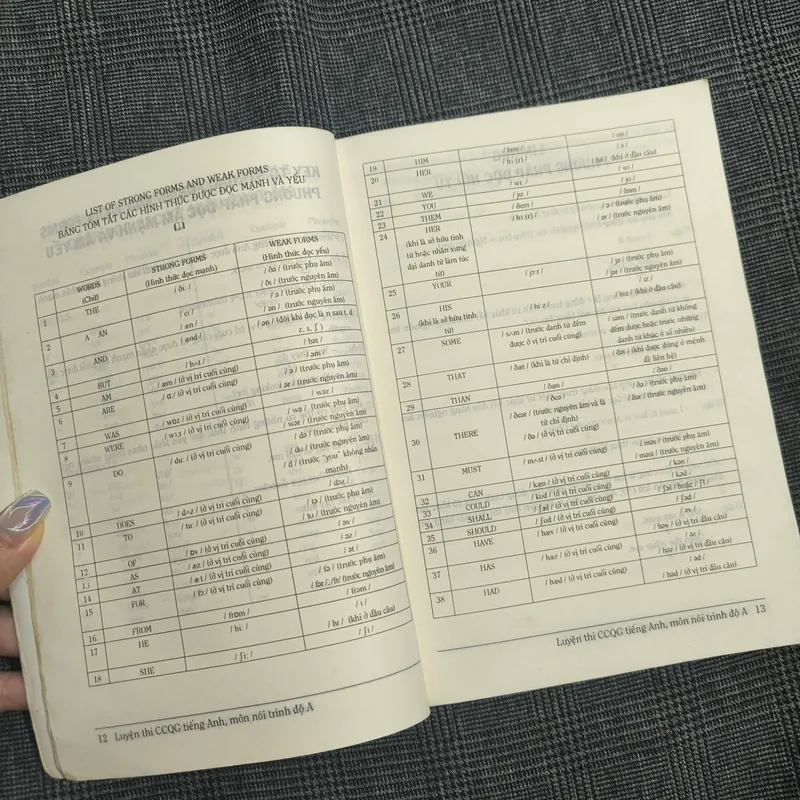 LIST OF STRONG FORMS AND WEAK FORMS
BẢNG TÓM TẮT CÁC HÌNH THỨC ĐƯỢC ĐỌC MẠNH VÀ YẾU
WORDS (Chữ) STRONG FORMS (Hình thức đọc mạnh) WEAK FORMS (Hình thức đọc yếu)
1 THE / ði: / / ðə / (trước phụ âm)
/ ði / (trước nguyên âm)
2 A / ei / / ə / (trước phụ âm)
AN / æn / / ən / (trước nguyên âm)
3 AND / ænd / / ən / (đôi khi đọc là n sau t, d, z, s, ʃ )
4 BUT / bʌt / / bət /
5 AM / æm / (ở vị trí cuối cùng) / əm /
6 ARE / ɑ: / (ở vị trí cuối cùng) / ə / (trước phụ âm)
/ ər / (trước nguyên âm)
7 WAS / wɒz / (ở vị trí cuối cùng) / wəz /
8 WERE / wɜ: / (ở vị trí cuối cùng) / wə / (trước phụ âm)
/ wər / (trước nguyên âm)
9 DO / du: / (ở vị trí cuối cùng) / də / (trước phụ âm)
/ du / (trước nguyên âm)
/ d / (trước "you" không nhấn mạnh)
10 DOES / dʌz / (ở vị trí cuối cùng) / dəz /
11 TO / tu: / (ở vị trí cuối cùng) / tə / (trước phụ âm)
/ tu / (trước nguyên âm)
12 OF / ɒv / (ở vị trí cuối cùng) / əv /
13 AS / æz / (ở vị trí cuối cùng) / əz /
14 AT / æt / (ở vị trí cuối cùng) / ət /
15 FOR / fɔ: / (ở vị trí cuối cùng) / fə / (trước phụ âm)
(trước nguyên âm)
16 FROM / frɒm / / frəm /
17 HE / hi: / / i /
/ hi / (khi ở đầu câu)
18 SHE / ʃi: / / ʃi /
12 Luyện thi CCQG tiếng Anh, môn nói trình độ A
19 HIM / him / / im /
20 HER / hɜ: (r) / / ə /
(khi ở đầu câu)
21 WE / wi: / / wi /
22 YOU / ju: / / ju /
23 THEM / ðem / / ðəm /
24 HER (khi là sở hữu tính từ hoặc nhân xưng đại danh từ làm túc từ) / hɜ: (r) / / ə / (trước phụ âm)
/ ər / (trước nguyên âm)
25 YOUR / jɔ: r / / jə / (trước phụ âm)
/ jər / (trước nguyên âm)
26 HIS (khi là sở hữu tính từ) / hi: z / / iz /
/ hiz / (khi ở đầu câu)
27 SOME / sʌm / (trước danh từ đếm được ở vị trí cuối cùng) / səm / (trước danh từ không đếm được hoặc trước những danh từ khác ở số nhiều)
28 THAT / ðæt / (khi là từ chỉ định) / ðət / (khi được dùng ở mệnh đề liên hệ)
29 THAN / ðæn / / ðən /
30 THERE / ðeə / / ðə / (trước phụ âm)
/ ðeər / (trước nguyên âm và là từ chỉ định) / ðər / (trước nguyên âm)
/ ðə / (ở vị trí cuối cùng)
31 MUST / mʌst / (ở vị trí cuối cùng) / məs / (trước phụ âm)
/ məst / (trước nguyên âm)
32 CAN / kæn / (ở vị trí cuối cùng) / kən /
33 COULD / kud / (ở vị trí cuối cùng) / kəd /
34 SHALL / ʃæl / (ở vị trí cuối cùng) / ʃəl / hoặc / ʃl /
35 SHOULD / ʃud / (ở vị trí cuối cùng) / ʃəd /
36 HAVE / hæv / (ở vị trí cuối cùng) / əv /
/ həv / (ở vị trí đầu câu)
37 HAS / hæz / (ở vị trí cuối cùng) / əz /
/ həz / (ở vị trí đầu câu)
38 HAD / hæd / (ở vị trí cuối cùng) / əd /
/ həd / (ở vị trí đầu câu)
Luyện thi CCQG tiếng Anh, môn nói trình độ A 13